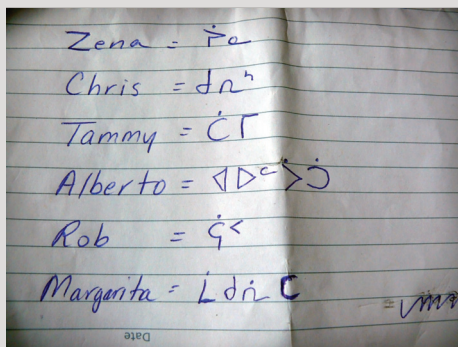 Zena =
Chris = ᑯᕆᔅ
Tammy = ᑖᒥ
Alberto =
Rob = ᕌᑉ
Margarita = ᒫᑯᕇᑕ
Date